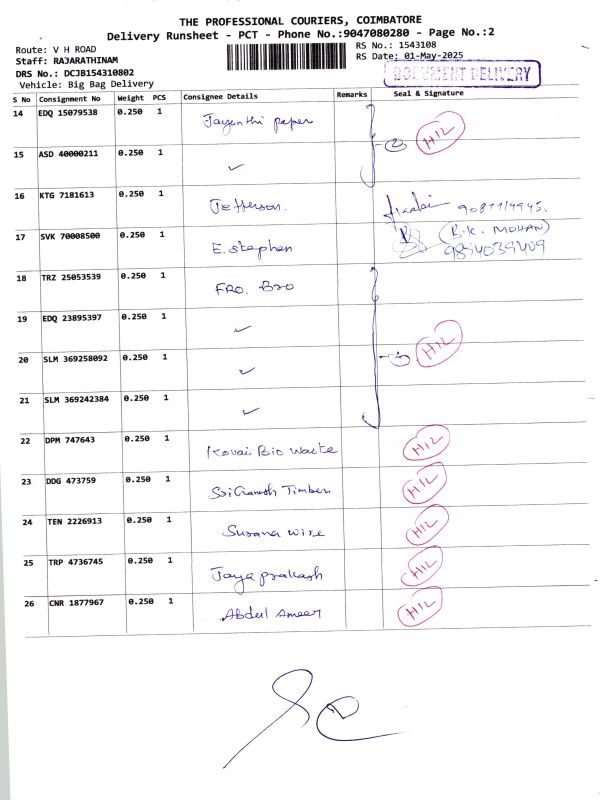 THE PROFESSIONAL COURIERS, COIMBATORE
Delivery Runsheet - PCT - Phone No.:9047080280 - Page No.:2
Route: V H ROAD
RS No.: 1543108
Staff: RAJARATHINAM
RS Date: 01-May-2025
DRS No.: DCJB154310802
DOCUMENT DELIVERY
Vehicle: Big Bag Delivery
S No Consignment No Weight PCS Consignee Details Remarks Seal & Signature
14 EDQ 15079538 0.250 1 Jayanthi paper
15 ASD 40000211 0.250 1 ✓ 2 H12
16 KTG 7181613 0.250 1 Jefferson.
17 SVK 70008500 0.250 1 E. Stephen (B.K. MOHAN)
9894039409
18 TRZ 25053539 0.250 1 FRO. Bro
19 EDQ 23895397 0.250 1 ✓
20 SLM 369258092 0.250 1 ✓ H12
21 SLM 369242384 0.250 1 ✓
22 DPM 747643 0.250 1 Kovai Bio Waste H12
23 DDG 473759 0.250 1 Sri Ganesh Timber H12
24 TEN 2226913 0.250 1 Susana wire H12
25 TRP 4736745 0.250 1 Jaya prakash H12
26 CNR 1877967 0.250 1 Abdul Ameer H12